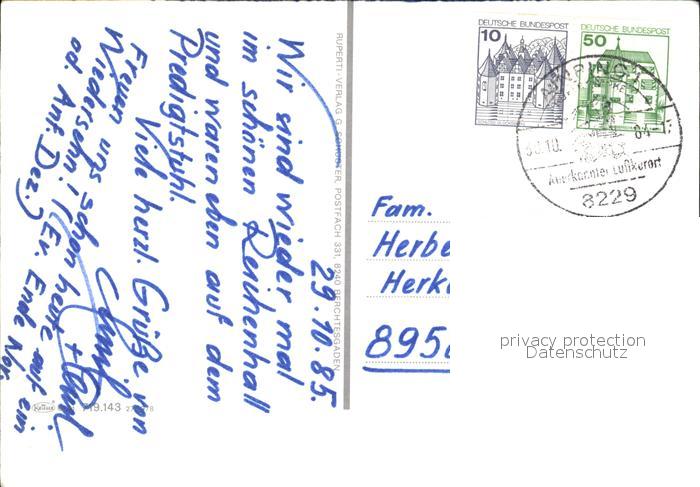 29.10.85.
Wir sind wieder mal
im schönen Reihenhall
und waren oben auf dem
Predigtstuhl.
Viele herzl. Grüße von
Freuen uns schon heute auf ein
Wiedersehn! (Ev. Ende Nov.
od. Anf. Dez.)
RUPERTI-VERLAG G. SCHUSTER, POSTFACH 331, 8240 BERCHTESGADEN
719.143
DEUTSCHE BUNDESPOST
10
DEUTSCHE BUNDESPOST
50
AINRING 1
30.10.
Anerkannter Luftkurort
8229
Fam.
Herbe
Herk
895
privacy protection
Datenschutz